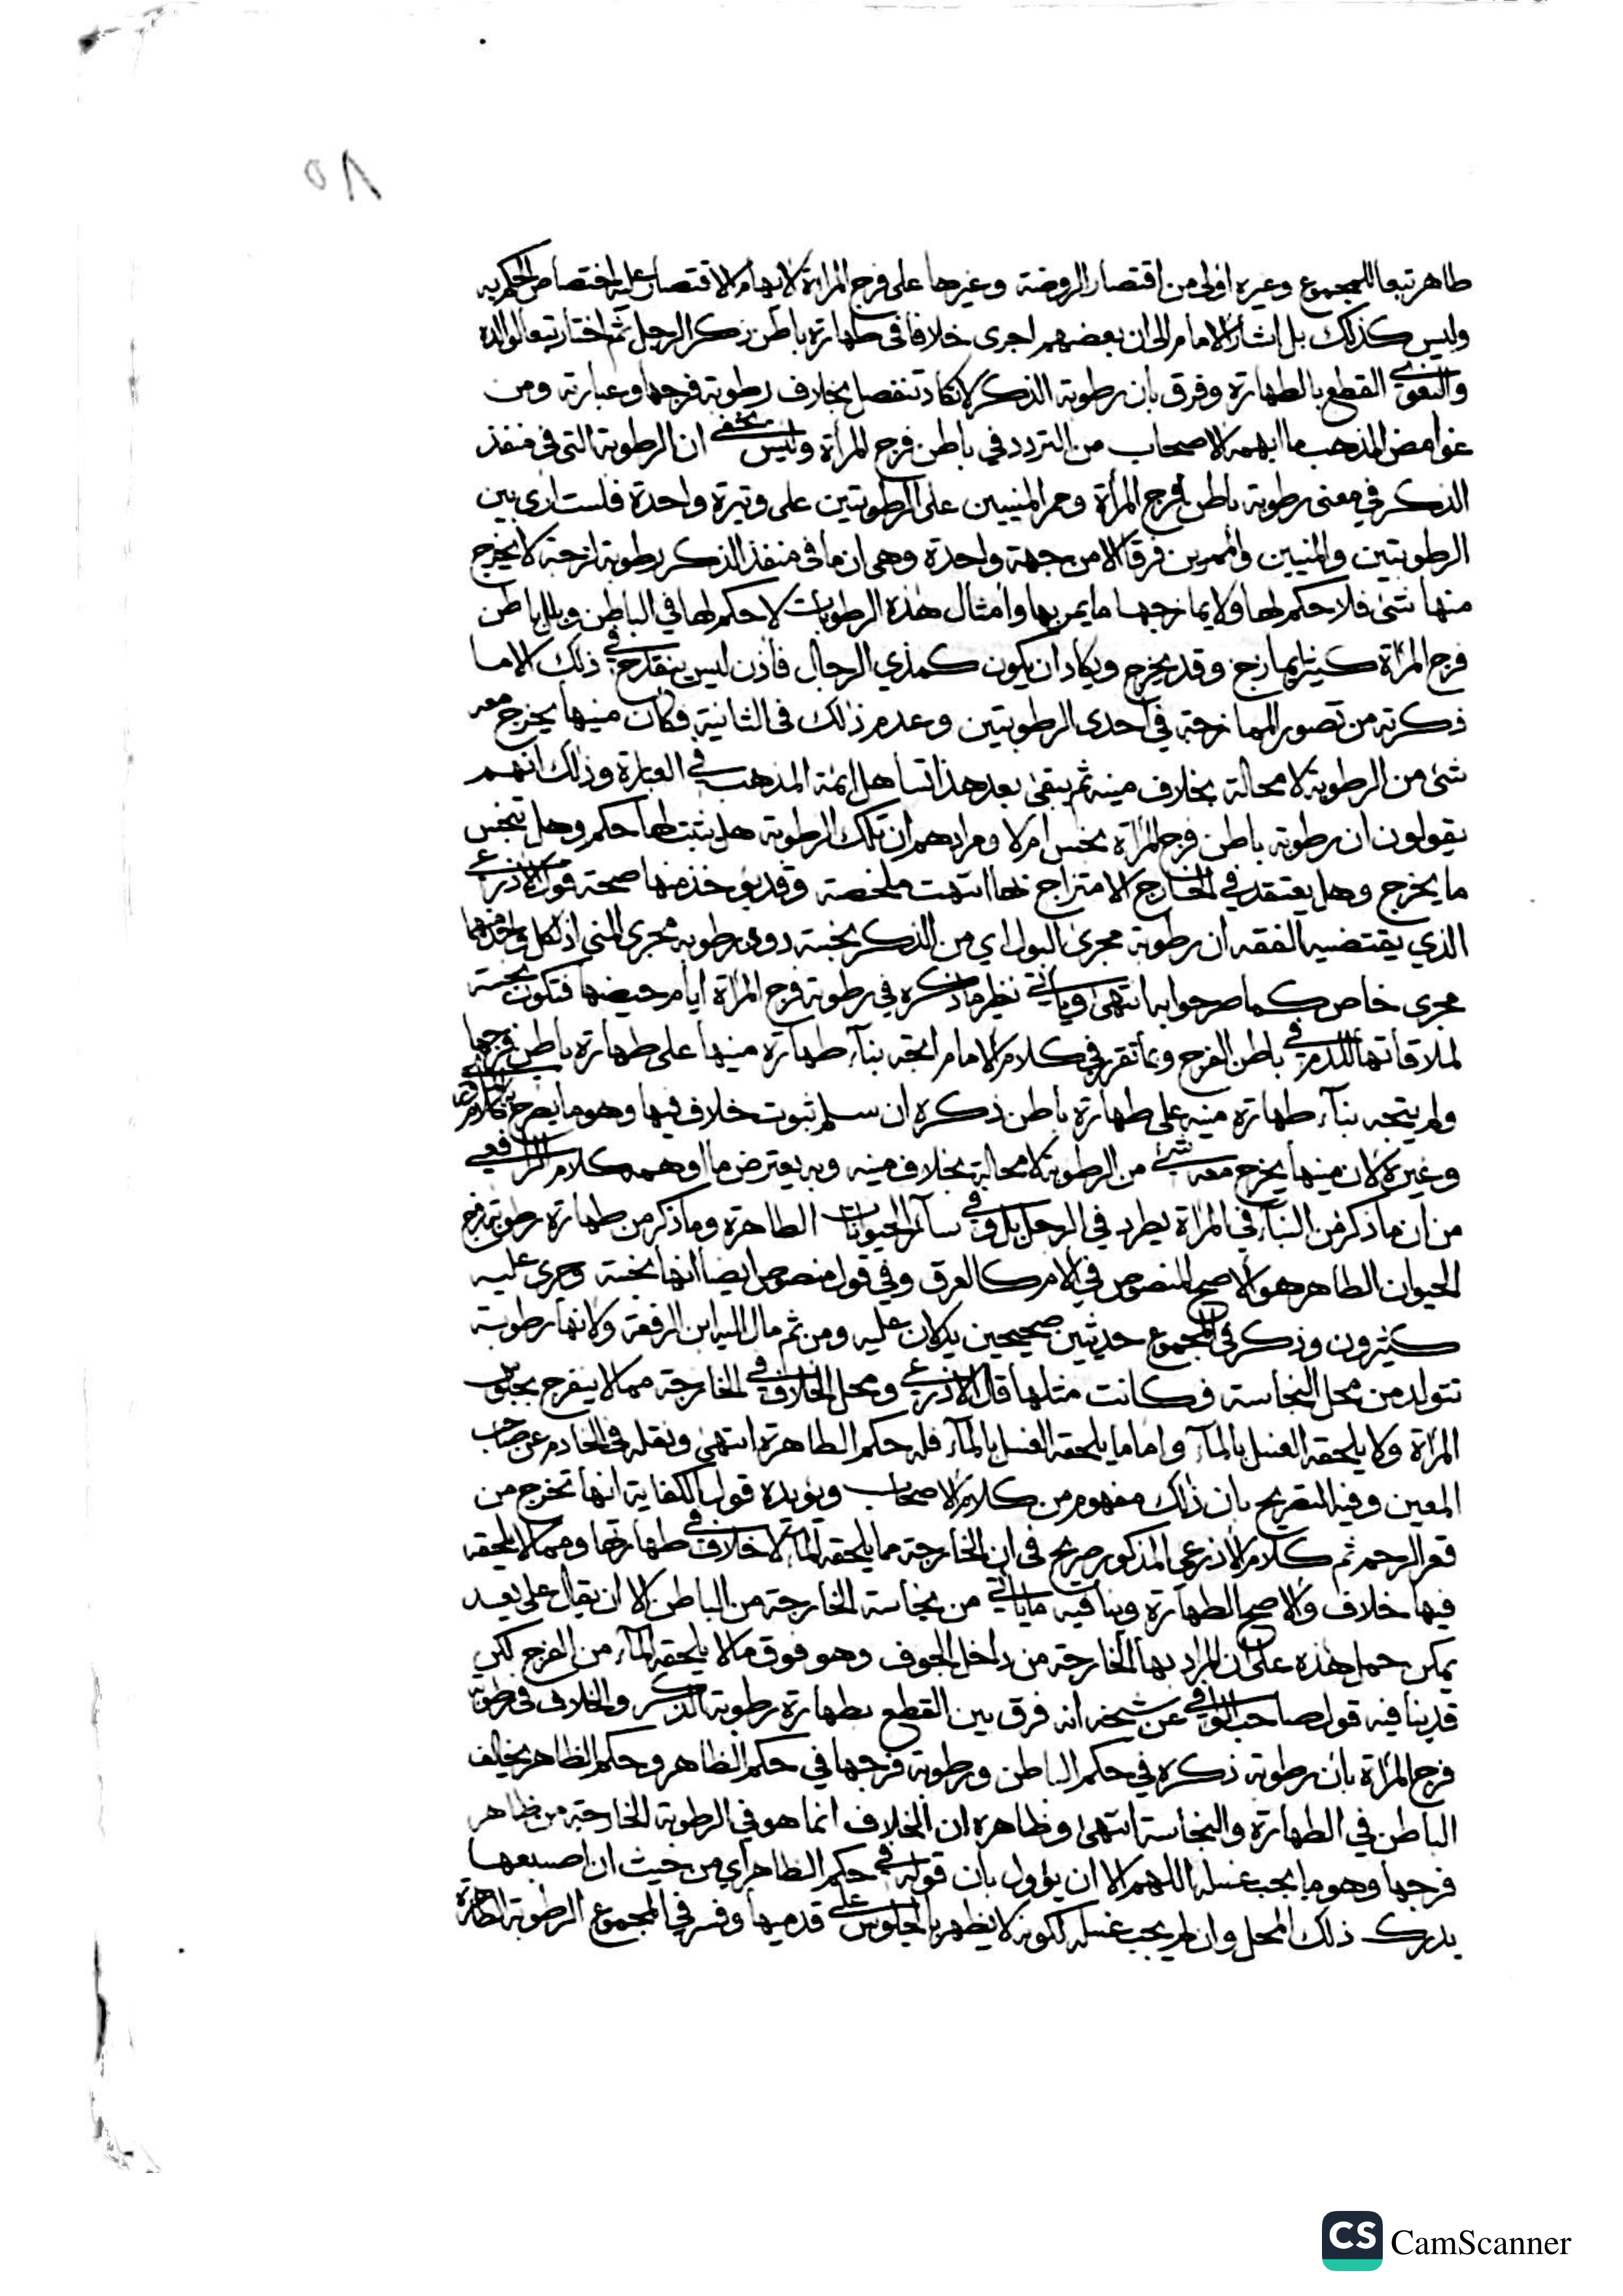 ٥٨
طاهر تبعا للمجموع وغيره اولى من اقتصار الروضة وغيرها على فرج المراة لايهام الاقتصار عليه اختصاص الحكم به
وليس كذلك بل اشار الامام الى ان بعضهم اجرى خلافا في طهارة باطن ذكر الرجل ثم اختار تبعا لوالده
والبغوي القطع بالطهارة وفرق بان رطوبة الذكر لا تكاد تنفصل بخلاف رطوبة فرجها وعبارته ومن
غوامض المذهب ما ابهمه الاصحاب من التردد في باطن فرج المرأة وليس يخفى ان الرطوبة التي في منفذ
الذكر في معنى رطوبة باطن فرج المرأة وممر المنيين على الرطوبتين على وتيرة واحدة فلست ارى بين
الرطوبتين والمنيين والممرين فرقا الا من جهة واحدة وهي ان ما في منفذ الذكر رطوبة لزجة لا يخرج
منها شئ فلا حكم لها ولا يمازجها ما يمر بها وامثال هذه الرطوبات لا حكم لها في الباطن وبلل باطن
فرج المراة كثير يمازج وقد يخرج ويكاد ان يكون كمذي الرجال فاذن ليس ينقدح في ذلك الا ما
ذكرته من تصور الممازجة في احدى الرطوبتين وعدم ذلك في الثانية فكان منيها يخرج معه
شئ من الرطوبة لا محالة بخلاف منيه ثم يبقى بعد هذا تساهل ائمة المذهب في العبارة وذلك انهم
يقولون ان رطوبة باطن فرج المراة نجس ام لا ومرادهم ان تلك الرطوبة هل يثبت لها حكم وهل تنجس
ما يخرج وهل يعتقد في الخارج الامتزاج بها انتهت ملخصة وقد يؤخذ منها صحة قول الاذرعي
الذي يقتضيه الفقه ان رطوبة مجرى البول اي من الذكر نجسة دون رطوبة مجرى المني اذ لكل واحد منهما
مجرى خاص كما صرحوا به انتهى وياتي نظير ما ذكره في رطوبة فرج المراة ايام حيضها فتكون نجسة
لملاقاتها للدم في باطن الفرج وبما تقرر في كلام الامام اتجه بناء طهارة منيها على طهارة باطن فرجها
ولم يتجه بناء طهارة منيه على طهارة باطن ذكره ان سلم ثبوت خلاف فيها وهو ما يصرح به كلام
وغيره لان منيها يخرج معه شئ من الرطوبة لا محالة بخلاف منيه وبه يعترض ما اوهمه كلام الرافعي
من ان ما ذكر من البناء في المراة يطرد في الرجل بل وفي سائر الحيوانات الطاهرة وما ذكر من طهارة رطوبة فرج
الحيوان الطاهر هو الاصح المنصوص في الام كالعرق وفي قول منصوص ايضا انها نجسة وجرى عليه
كثيرون وذكر في المجموع حديثين صحيحين يدلان عليه ومن ثم مال اليه ابن الرفعة ولانها رطوبة
تتولد من محل النجاسة فكانت مثلها قال الاذرعي ومحل الخلاف في الخارجة مما لا ينفرج بجلوس
المراة ولا يلحقه الغسل بالماء واما ما يلحقه الغسل بالماء فله حكم الطاهرة انتهى ونقله في الخادم عن صاحب
المعين وفيه التصريح بان ذلك مفهوم من كلام الاصحاب ويؤيده قول الكفاية انها تخرج من
قعر الرحم ثم كلام الاذرعي المذكور صريح في ان الخارجة مما يلحقه الماء لا خلاف في طهارتها ومما لا يلحقه
فيها خلاف والاصح الطهارة وينافيه ما ياتي من نجاسة الخارجة من الباطن الا ان يقال على بعد
يمكن حمل هذه على ان المراد بها الخارجة من داخل الجوف وهو فوق ما لا يلحقه الماء من الفرج لكن
قد ينافيه قول صاحب الوافي عن شيخه انه فرق بين القطع بطهارة رطوبة الذكر والخلاف في رطوبة
فرج المراة بان رطوبة ذكره في حكم الباطن ورطوبة فرجها في حكم الظاهر وحكم الظاهر يخالف
الباطن في الطهارة والنجاسة انتهى وظاهره ان الخلاف انما هو في الرطوبة الخارجة من ظاهر
فرجها وهو ما يجب غسله اللهم الا ان يؤول بان قوله في حكم الظاهر اي من حيث ان اصبعها
يدرك ذلك المحل وان لم يجب غسله لكونه لا يظهر بالجلوس على قدميها وفسر في المجموع الرطوبة الطاهرة
CS CamScanner